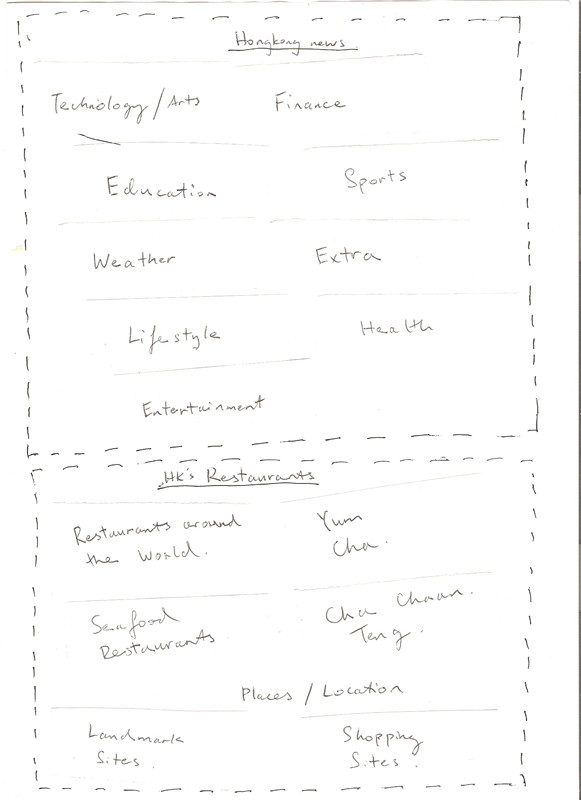 Hongkong news
Technology / Arts
Finance
Education
Sports
Weather
Extra
Lifestyle
Health
Entertainment
HK's Restaurants
Restaurants around
the World.
Yum
Cha.
Seafood
Restaurants
Cha Chaan.
Teng.
Places / Location
Landmark
Sites.
Shopping
Sites.